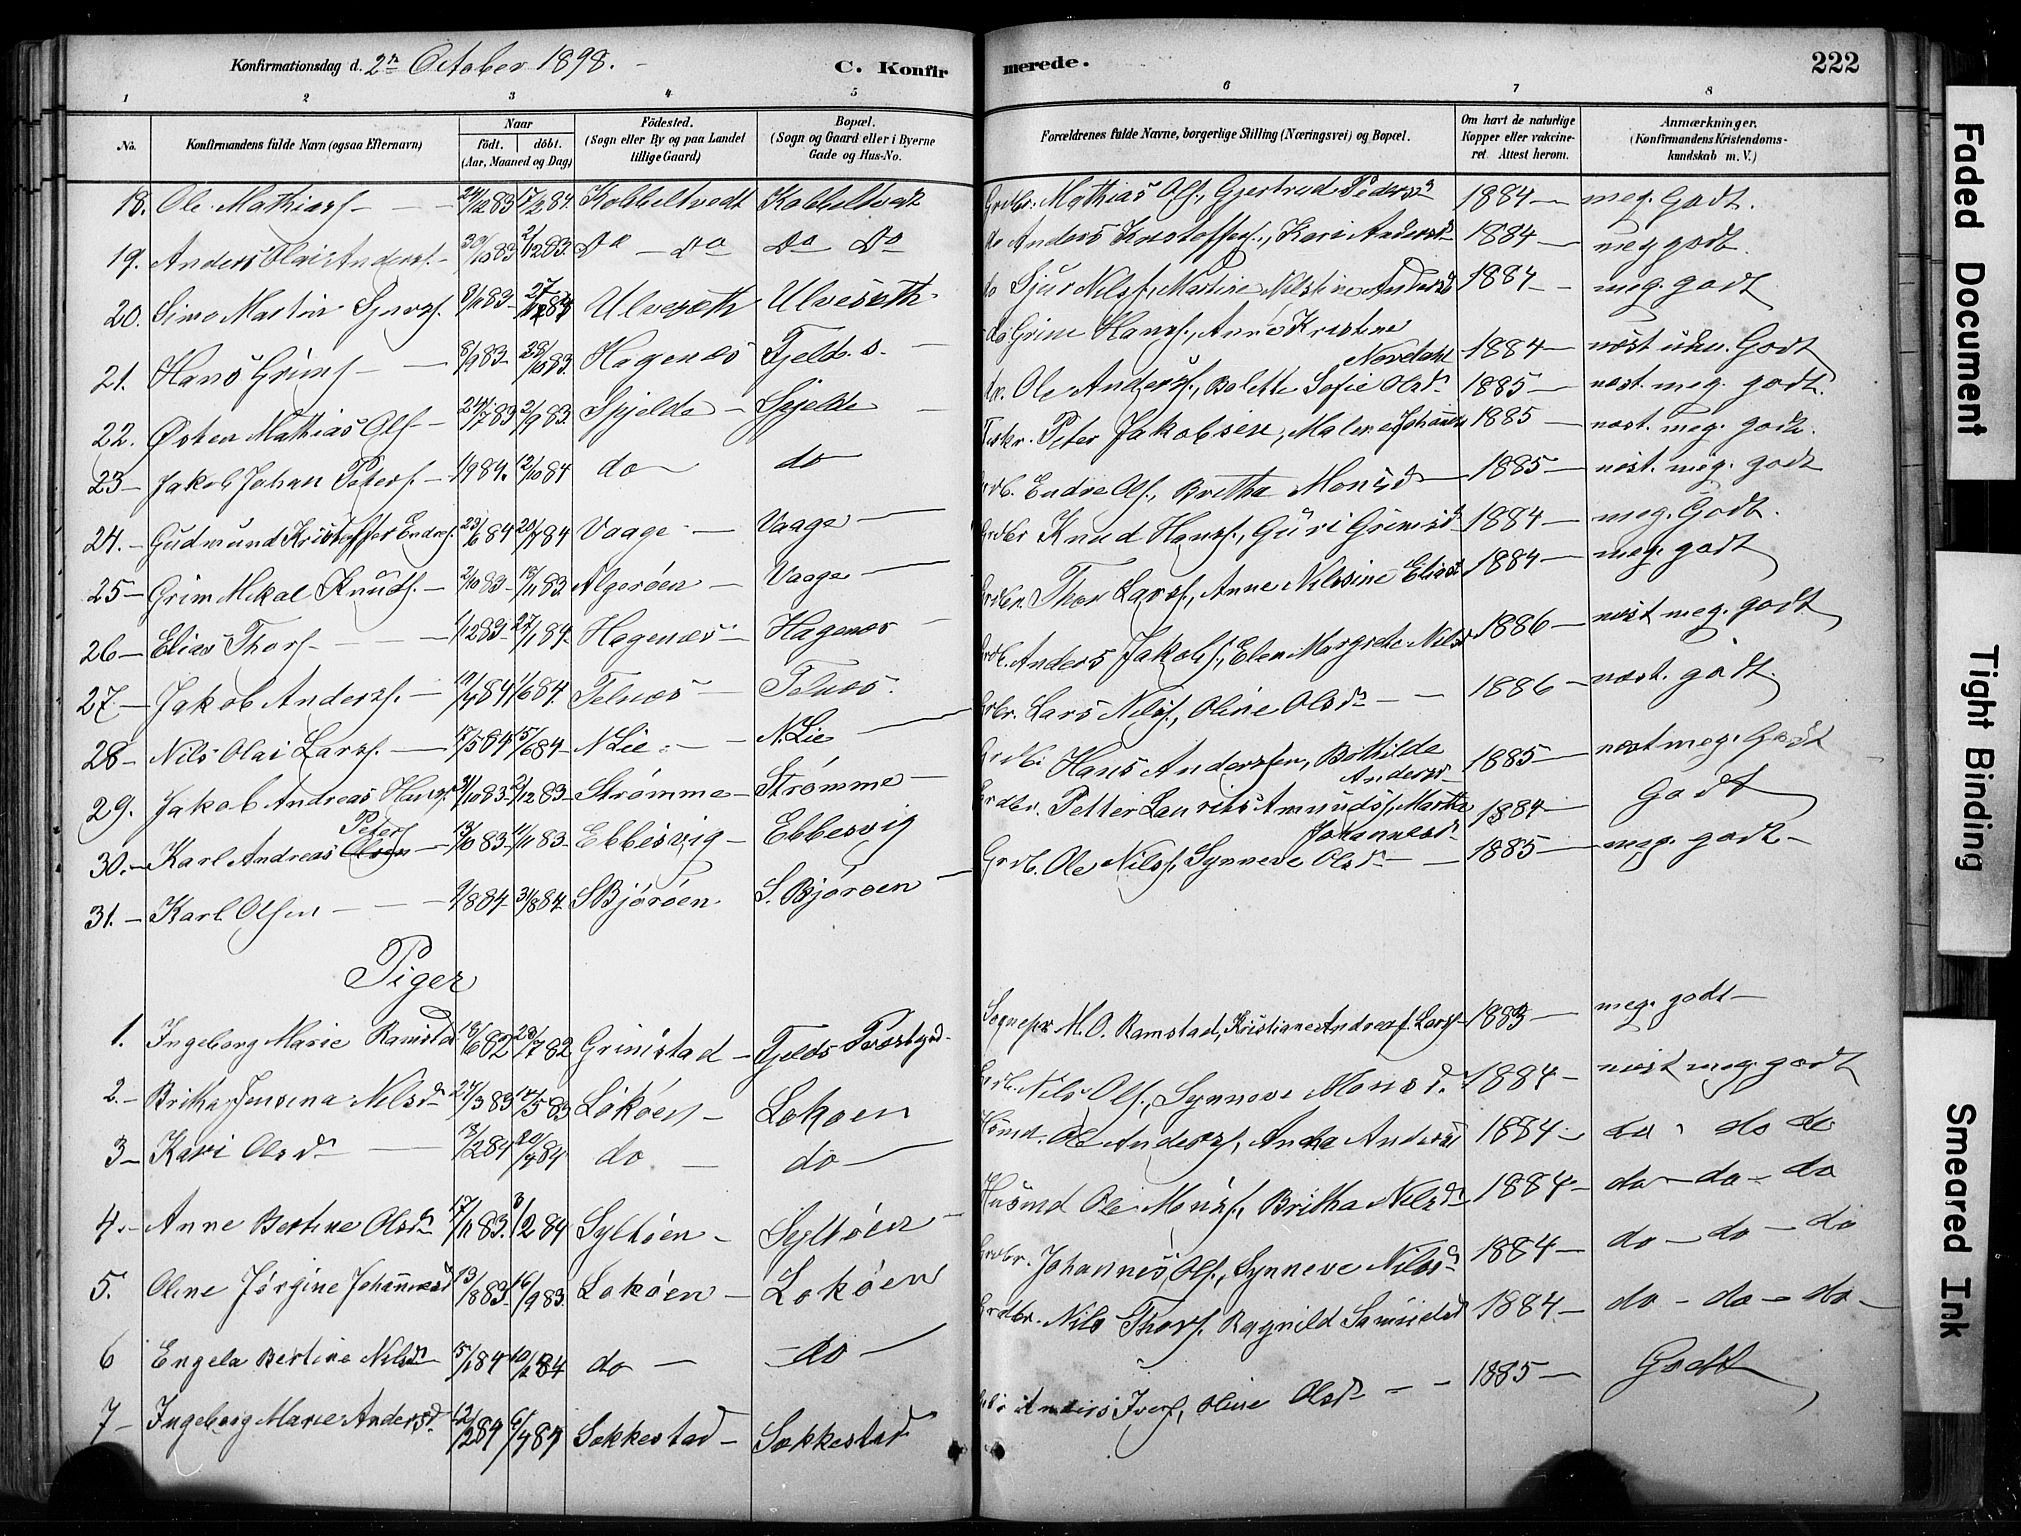 Konfirmationsdag d. 2n October 1898. C. Konfirmerede. 222
1 2 3 4 5 6 7 8
No. Konfirmandens fulde Navn (ogsaa Efternavn) Naar født. døbt. (Aar, Maaned og Dag) Födested. (Sogn eller By og paa Landet tillige Gaard) Bopæl. (Sogn og Gaard eller i Byerne Gade og Hus-No. Forældrenes fulde Navne, borgerlige Stilling (Næringsvei) og Bopæl. Om havt de naturlige Kopper eller vakcineret Attest herom. Anmærkninger. (Konfirmandens Kristendomskundskab m. V.)
18. Ole Mathiasf. 24/12 83 17/2 84. Kobbeltvedt Kobbeltvedt Grdbr. Mathias Olf., Gjertrud Pedersd 1884 meg. Godt.
19. Anders Olai Andersf. 30/10 83 2/12 83. Do Do Do Do do Anders Kristoffersf., Kari Andersd 1884 meg godt.
20. Simo Martin Sjursf. 8/11 83 27/12 83 Ulveseth Ulveseth do Sjur Nilsf., Martine Nilsine Andersd 1884 meg. godt
21. Hans Grimsf. 8/9 83 28/10 83. Hagenæs Fjeld. s. do Grim Hansf., Anne Kristine Novedahl 1884 næst udm. Godt
22. Østen Mathias Olf. 24/7 83 2/9 83. Spjelde Spjelde do. Ole Andersf., Bolette Sofie Olsd 1885 næst. meg. godt.
23 Jakob Johan Petersf. 1/9 84. 12/10 84 do do Peter Jakobsen, Malene Johannesd 1885 næst. meg. godt.
24. Gudmund Kristoffer Endref. 23/6 84 20/7 84 Vaage Vaage Grdb. Endre Olf., Britha Monsd 1885 næst. meg. godt
25 Grim Mikal Knudsf. 2/10 83 18/11 83. Algerøen Vaage Grdbr Knud Hansf., Guri Grimsd 1884 meg. Godt.
26 Elias Thorsf. 1/12 83. 27/1 84. Hagenæs Hagenæs Grdbr. Thor Larsf., Anne Nilsine Eliasd 1884 meg. godt
27. Jakob Andersf. 19/4 84 1/6 84. Telnæs Telnæs. Grdb. Anders Jakobsf., Elen Margrete Nilsd 1886 næst meg. godt
28 Nils Olai Larsf. 17/5 84 15/6 84 N. Lie N. Lie Grdbr. Lars Nilsf., Oline Olsd 1886 næst. godt.
29. Jakob Andreas Hansf. 31/10 83 2/12 83 Strømme Strømme Grdbr Hans Andersen, Bothilde Andersd 1885 næst meg. Godt
30. Karl Andreas Petersf. 13/10 83 11/11 83. Ebbesvig Ebbesvig Grdbr. Petter Laurits Amundsf., Martha Johannesd 1884 Godt
31. Karl Olsen 9/8 84 31/8 84 S Bjørøen S. Bjørøen Grdb. Ole Nilsf. Synneve Olsd 1885 meg. godt
Piger
1. Ingeborg Marie Ramstad 18/6 82 23/7 82 Grimstad Fjelds Præstegd. Sognepr M. O. Ramstad, Kristiane Andrea f. Lars 1883 meg. godt
2. Britha Jensena Nilsd 27/3 83 14/5 83 Lokøen Lokøen Grdb. Nils Olf., Synneve Monsd. 1884 næst meg. godt
3 Kari Olsd 13/2 84 20/4 84 do do Husmd. Ole Andersf., Anna Andersd 1884 do do do
4. Anne Bertine Olsd 17/11 83. 3/2 84 Syltøen Syltøen Husmd Ole Monsf., Britha Nilsd 1884 do do do
5. Oline Jørgine Johannesd 13/8 83. 16/9 83. Lokøen Lokøen Grdbr. Johannes Olf., Synneve Nilsd 1884 do do do
6 Engela Bertine Nilsd 5/1 84 10/2 84 do do Grdbr. Nils Thorsf. Ragnild Samuelsd 1884 do do do
7 Ingeborg Marie Andersd. 12/2 84 6/4 84 Sekkestad Sekkestad Anders Iversf., Oline Olsd 1885 Godt
Faded Document
Tight Binding
Smeared Ink